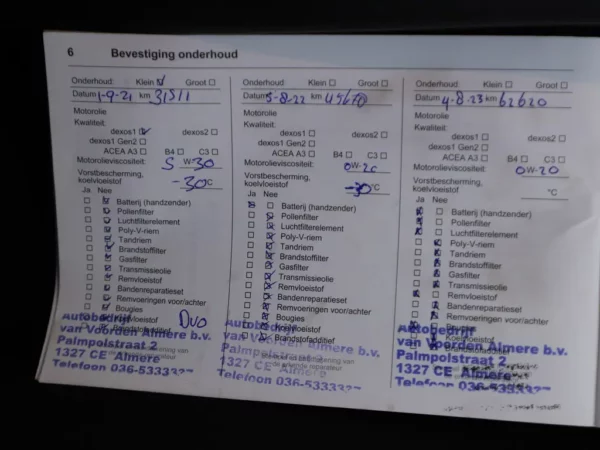 6 Bevestiging onderhoud
Onderhoud: Klein Groot
Datum 1-9-21 km 31511
Motorolie
Kwaliteit:
dexos1 dexos2
dexos1 Gen2
ACEA A3 B4 C3
Motorolieviscositeit: 5 W-30
Vorstbescherming,
koelvloeistof -30°C
Ja Nee
Batterij (handzender)
Pollenfilter
Luchtfilterelement
Poly-V-riem
Tandriem
Brandstoffilter
Gasfilter
Transmissieolie
Remvloeistof
Bandenreparatieset
Remvoeringen voor/achter
Bougies
Brandstofadditief
DUO
Autobedrijf
van Voorden Almere b.v.
Palmpolstraat 2
1327 CE Almere
Telefoon 036-5333
Onderhoud: Klein Groot
Datum 5-8-22 km
Motorolie
Kwaliteit:
dexos1 dexos2
dexos1 Gen2
ACEA A3 B4 C3
Motorolieviscositeit: 0W-20
Vorstbescherming,
koelvloeistof -30°C
Ja Nee
Batterij (handzender)
Pollenfilter
Luchtfilterelement
Poly-V-riem
Tandriem
Brandstoffilter
Gasfilter
Transmissieolie
Remvloeistof
Bandenreparatieset
Remvoeringen voor/achter
Bougies
Koelvloeistof
Brandstofadditief
Autobedrijf
van Voorden Almere b.v.
Palmpolstraat 2
1327 CE Almere
Telefoon 036-5333
Onderhoud: Klein Groot
Datum 4-8-23 km 62620
Motorolie
Kwaliteit:
dexos1 dexos2
dexos1 Gen2
ACEA A3 B4 C3
Motorolieviscositeit: 0W-20
Vorstbescherming,
koelvloeistof °C
Ja Nee
Batterij (handzender)
Pollenfilter
Luchtfilterelement
Poly-V-riem
Tandriem
Brandstoffilter
Gasfilter
Transmissieolie
Remvloeistof
Bandenreparatieset
Remvoeringen voor/achter
Bougies
Koelvloeistof
Autobedrijf
van Voorden Almere b.v.
Palmpolstraat 2
1327 CE Almere
Telefoon 036-5333